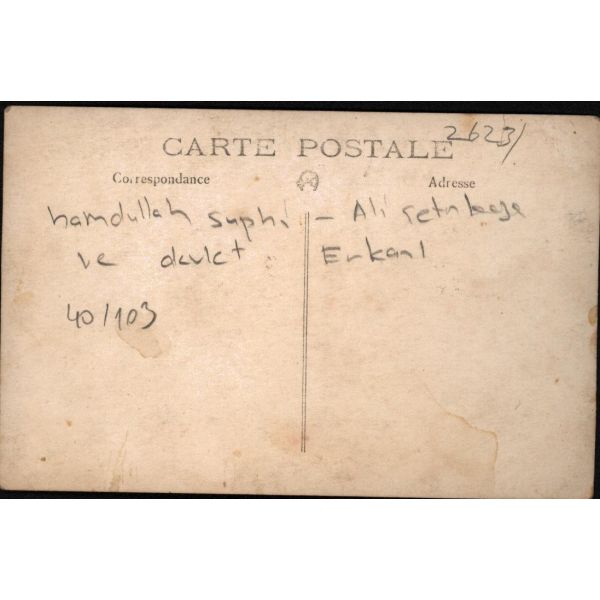 2623/
CARTE POSTALE
Correspondance
Adresse
hamdullah suphi - Ali Çetinkaya
ve devlet Erkanı
40/103